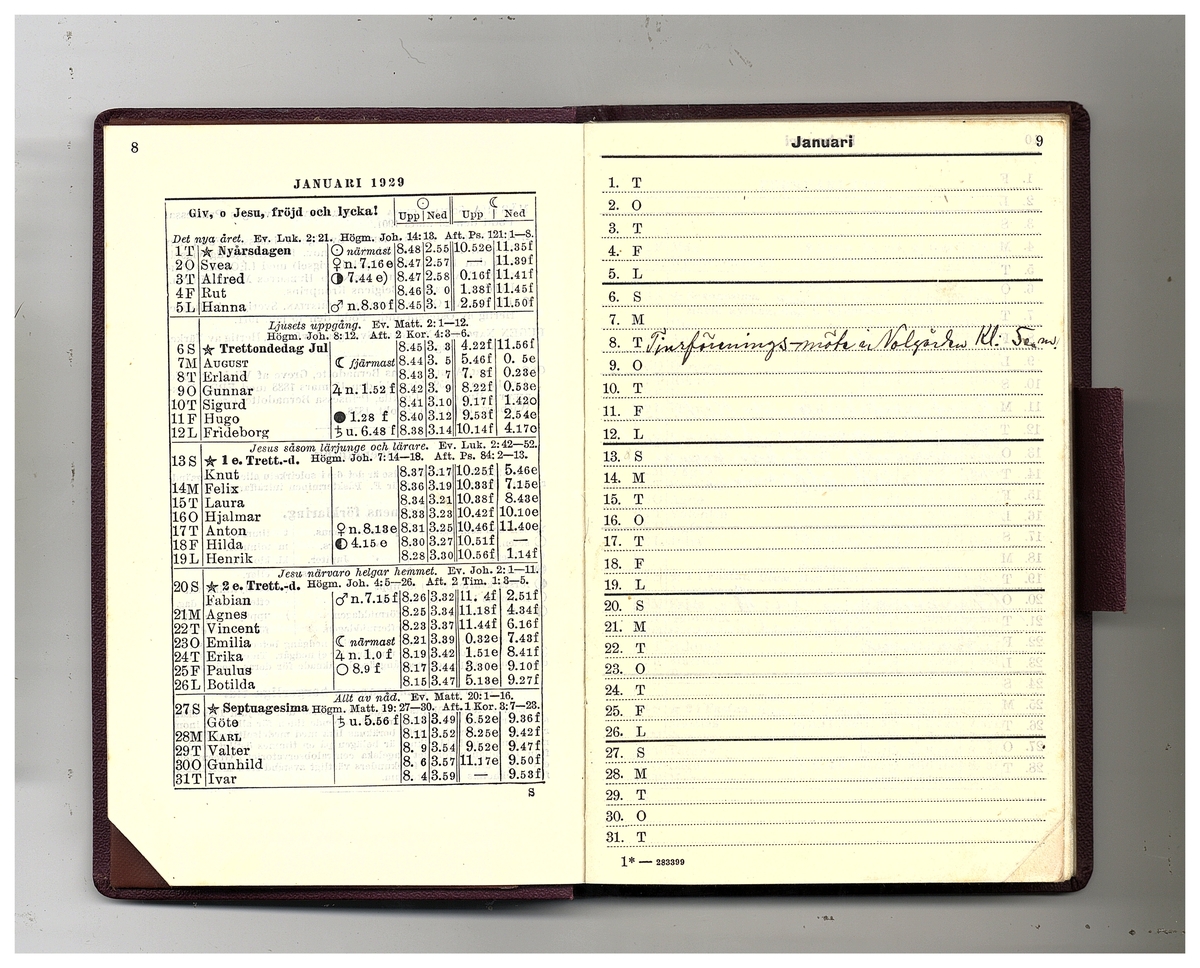 8
JANUARI 1929
Giv, o Jesu, fröjd och lycka! ☉ ☾
Upp Ned Upp Ned
Det nya året. Ev. Luk. 2: 21. Högm. Joh. 14: 13. Aft. Ps. 121: 1—8.
1 T ★ Nyårsdagen ☉ närmast 8.48 2.55 10.52e 11.35f
2 O Svea ♀ n. 7.16 e 8.47 2.57 — 11.39f
3 T Alfred ◑ 7.44 e) 8.47 2.58 0.16f 11.41f
4 F Rut 8.46 3. 0 1.38f 11.45f
5 L Hanna ♂ n. 8.30 f 8.45 3. 1 2.59f 11.50f
Ljusets uppgång. Ev. Matt. 2: 1—12.
Högm. Joh. 8: 12. Aft. 2 Kor. 4: 3—6.
6 S ★ Trettondedag Jul 8.45 3. 3 4.22f 11.56f
7 M AUGUST ☾ fjärmast 8.44 3. 5 5.46f 0. 5e
8 T Erland 8.43 3. 7 7. 8f 0.23e
9 O Gunnar ♃ n. 1.52 f 8.42 3. 9 8.22f 0.53e
10 T Sigurd 8.41 3.10 9.17f 1.42e
11 F Hugo ● 1.28 f 8.40 3.12 9.53f 2.54e
12 L Frideborg ♄ u. 6.48 f 8.38 3.14 10.14f 4.17e
Jesus såsom lärjunge och lärare. Ev. Luk. 2: 42—52.
13 S ★ 1 e. Trett.-d. Högm. Joh. 7: 14—18. Aft. Ps. 84: 2—13.
Knut 8.37 3.17 10.25f 5.46e
14 M Felix 8.36 3.19 10.33f 7.15e
15 T Laura 8.34 3.21 10.38f 8.43e
16 O Hjalmar 8.33 3.23 10.42f 10.10e
17 T Anton ♀ n. 8.13e 8.31 3.25 10.46f 11.40e
18 F Hilda ◐ 4.15 e 8.30 3.27 10.51f —
19 L Henrik 8.28 3.30 10.56f 1.14f
Jesu närvaro helgar hemmet. Ev. Joh. 2: 1—11.
20 S ★ 2 e. Trett.-d. Högm. Joh. 4: 5—26. Aft. 2 Tim. 1: 3—5.
Fabian ♂ n. 7.15 f 8.26 3.32 11. 4f 2.51f
21 M Agnes 8.25 3.34 11.18f 4.34f
22 T Vincent 8.23 3.37 11.44f 6.16f
23 O Emilia ☾ närmast 8.21 3.39 0.32e 7.43f
24 T Erika ♃ n. 1.0 f 8.19 3.42 1.51e 8.41f
25 F Paulus ○ 8.9 f 8.17 3.44 3.30e 9.10f
26 L Botilda 8.15 3.47 5.13e 9.27f
Allt av nåd. Ev. Matt. 20: 1—16.
27 S ★ Septuagesima Högm. Matt. 19: 27—30. Aft. 1 Kor. 3: 7—23.
Göte ♄ u. 5.56 f 8.13 3.49 6.52e 9.36f
28 M KARL 8.11 3.52 8.25e 9.42f
29 T Valter 8. 9 3.54 9.52e 9.47f
30 O Gunhild 8. 6 3.57 11.17e 9.50f
31 T Ivar 8. 4 3.59 — 9.53f
S
Januari 9
1. T
2. O
3. T
4. F
5. L
6. S
7. M
8. T Tjurförenings-möte i Nolgården Kl. 5 e.m.
9. O
10. T
11. F
12. L
13. S
14. M
15. T
16. O
17. T
18. F
19. L
20. S
21. M
22. T
23. O
24. T
25. F
26. L
27. S
28. M
29. T
30. O
31. T
1* — 283399